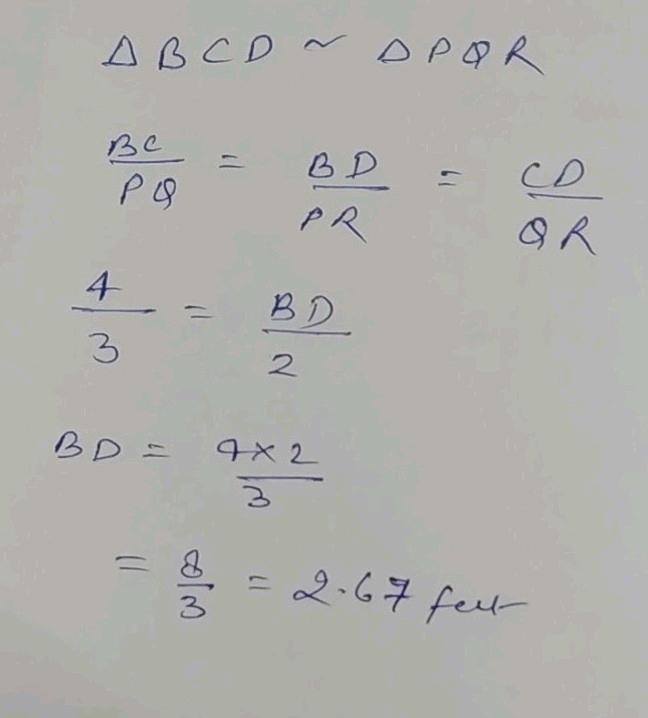 Δ B C D ~ Δ P Q R
BC/PQ = BD/PR = CD/QR
4/3 = BD/2
BD = 4×2/3
= 8/3 = 2.67 feet